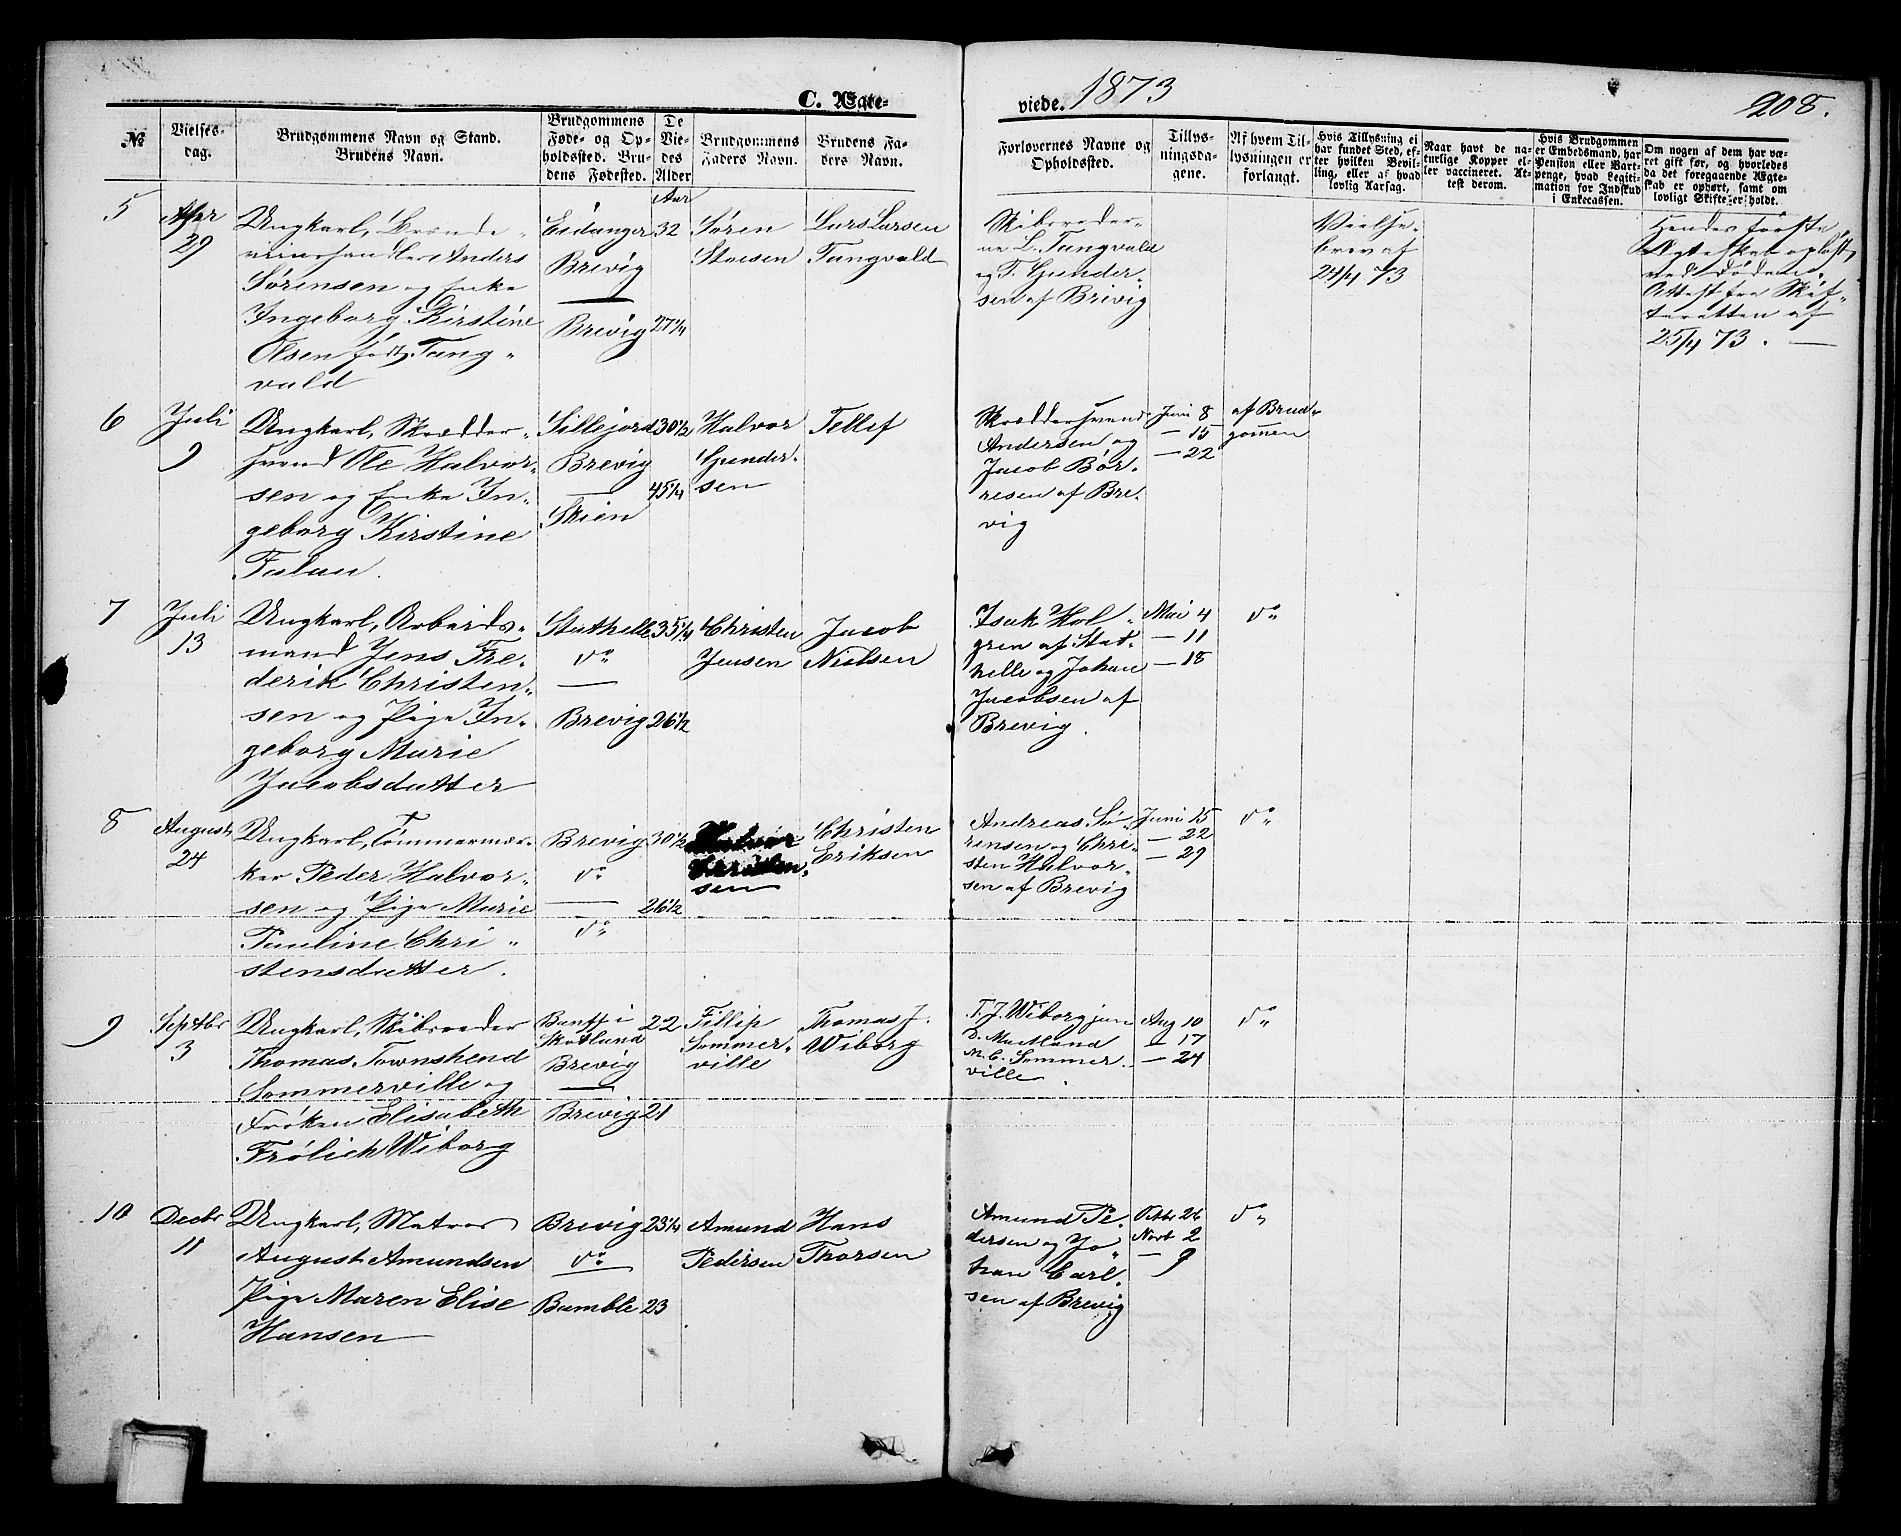 C. Ægte-
viede. 1873
208.
№
Vielses-
dag.
Brudgommens Navn og Stand.
Brudens Navn.
Brudgommens
Føde- og Op-
holdssted. Bru-
dens Fødested.
De
Vie-
des
Alder
Brudgommens
Faders Navn.
Brudens Fa-
ders Navn.
Forlovernes Navne og
Opholdssted.
Tillys-
ningsda-
gene.
Af hvem Til-
lysningen er
forlangt.
Hvis Tillysning ei
har fundet Sted, ef-
ter hvilken Bevil-
ling, eller af hvad
lovlig Aarsag.
Naar havt de na-
turlige Kopper el-
ler vaccineret. At-
test derom.
Hvis Brudgommen
er Embedsmand, har
Pension eller Vart-
penge, hvad Legiti-
mation for Indskud
i Enkecassen.
Om nogen af dem har væ-
ret gift før, og hvorledes
da det foregaaende Ægte-
skab er ophørt, samt om
lovligt Skifte er holdt.
5
Apr
29
Ungkarl, Brænde-
viinshandler Anders
Sørensen og Enke
Ingeborg Kirstine
Olsen født Tang-
vald
Eidanger
Brevig
—
Brevig
Aar
32
27 1/4
Søren
Lars Larsen
Tangvald
Skibsreder-
ne L. Tangvald
og T. Gunder-
sen af Brevig
Vielse-
brev af
24/4 73
Hendes første
Ægteskab opløst
ved Døden.
Attest fra Skif-
teretten af
25/4 73. —
6
Juli
9
Ungkarl, Skrædder-
svend Ole Halvor-
sen og Enke In-
geborg Kirstine
Sillejord
Brevig
—
Skien
30 1/2
45 1/4
Halvor
Gunder-
sen
Tellef
Skræddersvend
Andersen og
Jacob Bør-
resen af Bre-
vig
Juni 8
— 15
— 22
af Brud-
gommen
7
Juli
13
Ungkarl, Arbeids-
mand Jens Fre-
derik Christen-
sen og Pige In-
geborg Marie
Jacobsdatter
Stathelle
do
—
Brevig
35 1/4
26 1/2
Christen
Jensen
Jacob
Nielsen
Isak Hol-
gren af Stat-
helle og Johan
Jacobsen af
Brevig.
Mai 4
— 11
— 18
do
8
August
24
Ungkarl, Tømmermær-
ker Peder Halvor-
sen og Pige Marie
Pauline Chri-
stensdatter.
Brevig
do
—
do
30 1/2
26 1/2
Halvor
Christen-
sen
Christen
Eriksen
Andreas Sø-
rensen og Chri-
sten Halvor-
sen af Brevig
Juni 15
— 22
— 29
do
9
Septbr
3
Ungkarl, Skibsreder
Thomas Townshend
Sommerville og
Frøken Elisabeth
Frølich Wiborg
Banff i
Skotland
Brevig
—
Brevig
22
21
Fillip
Sommer-
ville
Thomas J.
Wiborg
T. J. Wiborg jun
M. C. Sommer-
ville.
Aug 10
— 17
— 24
do
10
Decbr
11
Ungkarl, Matros
August Amundsen
Pige Maren Elise
Hansen
Brevig
do
—
Bamble
23 1/4
23
Amund
Pedersen
Hans
Thorsen
Amund Pe-
dersen og Jo-
han Carl-
sen af Brevig
Octbr 26
Novb 2
— 9
do